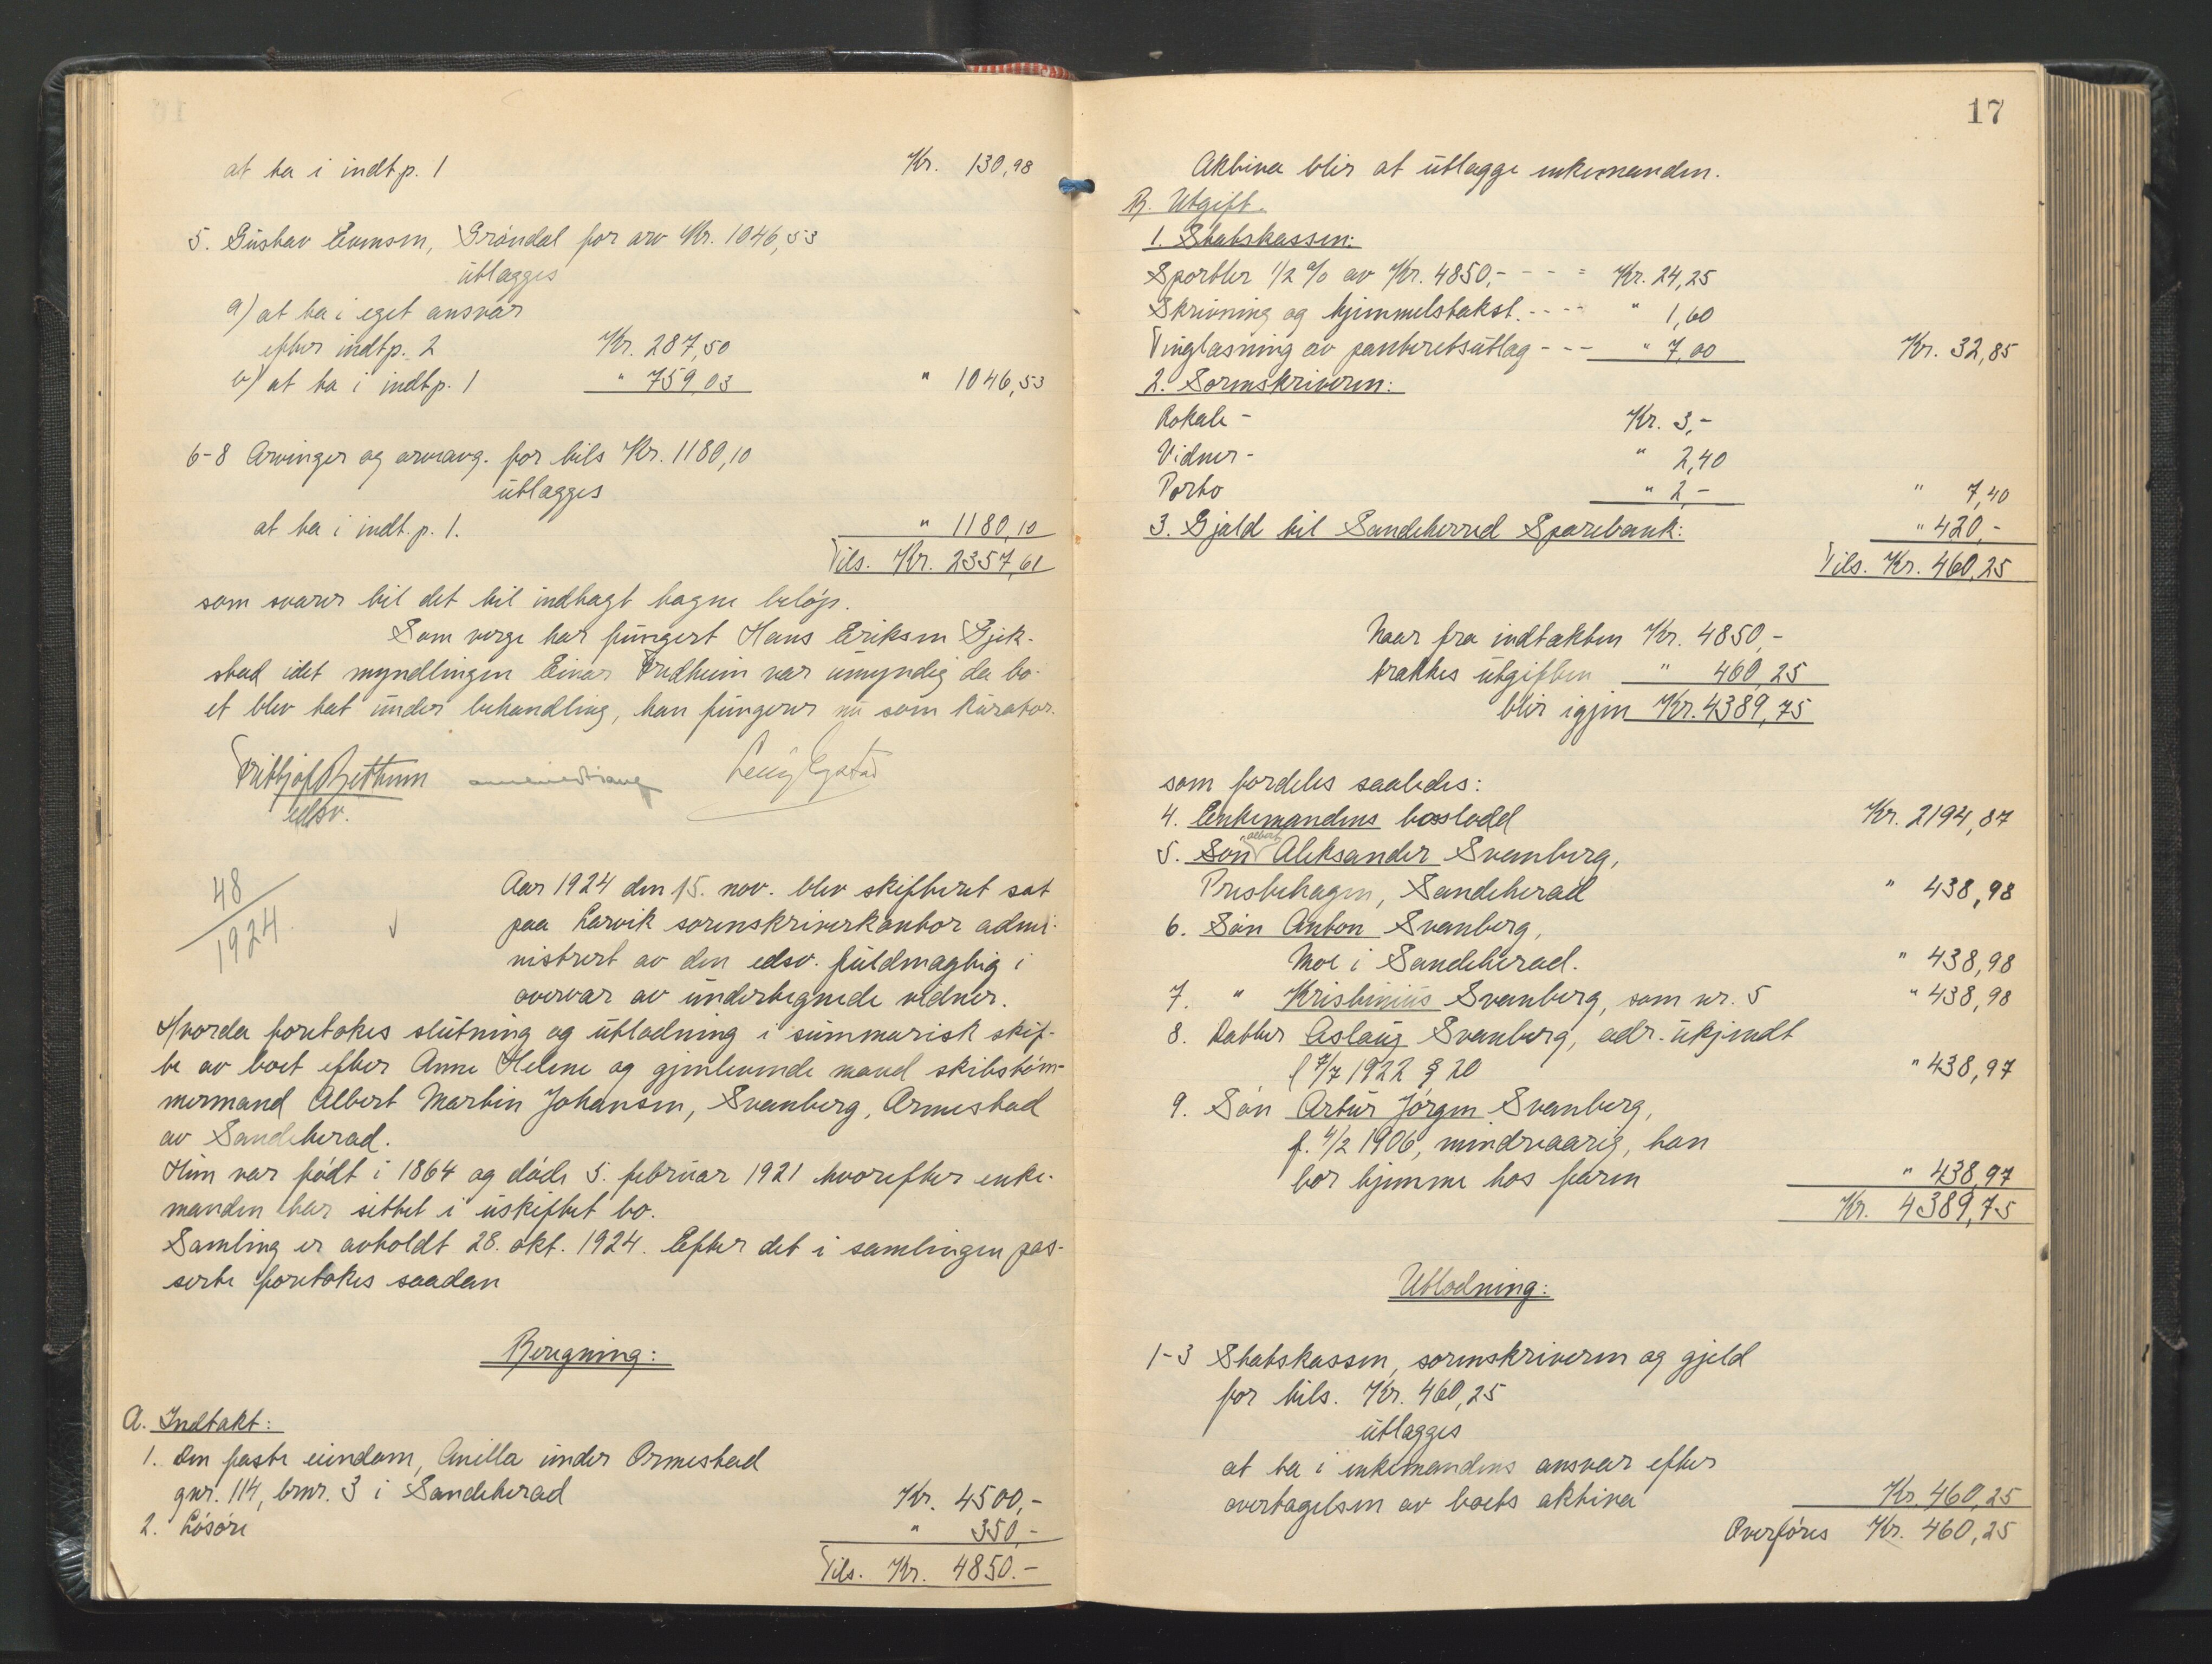 at ta i indt.p. 1 Kr. 130,98
5. Gustav Evensen, Gröndal for arv Kr. 1046,53
utlægges
a) at ta i eget ansvar
efter indt.p. 2 Kr. 287,50
b) at ta i indt.p. 1 " 759,03 " 1046,53
6-8 Arvinger og arveavg. for tils Kr. 1180,10
utlægges
at ta i indt.p. 1. " 1180,10
Tils. Kr. 2357,61
som svarer til det til indtægt tagne beløp.
Som verge har fungert Hans Eriksen Gjek-
stad idet myndlingen Einar var umyndig da bo-
et blev tat under behandling, han fungerer nu som kurator.
edsv.
48
1924
Aar 1924 den 15. nov. blev skifteret sat
paa Larvik sorenskriverkontor admi-
nistrert av den edsv. fuldmægtig i
overvær av undertegnede vidner.
Hvorda foretokes slutning og utlodning i summarisk skif-
te av boet efter Anne Helene og gjenlevende mand skibstöm-
mermand Albert Martin Johansen, Svanberg, Ormestad
av Sandeherad.
Hun var födt i 1864 og döde 5. februar 1921 hvorefter enke-
manden har sittet i uskiftet bo.
Samling er avholdt 28. okt. 1924. Efter det i samlingen pas-
serte foretokes saadan
Beregning:
A. Indtækt:
1. Den faste eiendom, Anilla under Ormestad
gnr. 114, brnr. 3 i Sandeherad Kr. 4500,-
2. Lösöre " 350,-
Tils. Kr. 4850.-
17
Aktiva blir at utlægge enkemanden.
B. Utgift.
1. Statskassen:
Sportler 1/2 % av Kr. 4850,- - - = Kr. 24,25
Skrivning og hjemmelstakst. - - - " 1,60
Tinglæsning av panteretsutlæg - - - " 7,00 Kr. 32,85
2. Sorenskriveren:
Lokale - Kr. 3,-
Vidner - " 2,40
Porto " 2,- " 7,40
3. Gjæld til Sandeherred Sparebank: " 420,-
Tils. Kr. 460,25
Naar fra indtækten Kr. 4850,-
trækkes utgiften " 460,25
blir igjen Kr. 4389,75
som fordeles saaledes:
4. Enkemandens boslodd Kr. 2194,87
Albert
5. Sön Aleksander Svanberg,
Prestehagen, Sandeherad " 438,98
6. Sön Anton Svanberg,
Moe i Sandeherad. " 438,98
7. " Kristinius Svanberg, som nr. 5 " 438,98
8. Datter Aslaug Svanberg, adr. ukjendt
l 7/7 1922 § 20 " 438,97
9. Sön Artur Jörgen Svanberg,
f. 4/2 1906, mindreaarig, han
bor hjemme hos faren " 438,97
Kr. 4389,75
Utlodning:
1-3 Statskassen, sorenskriveren og gjeld
for tils. Kr. 460,25
utlægges
at ta i enkemandens ansvar efter
overtagelsen av boets aktiva Kr. 460,25
Overföres Kr. 460,25